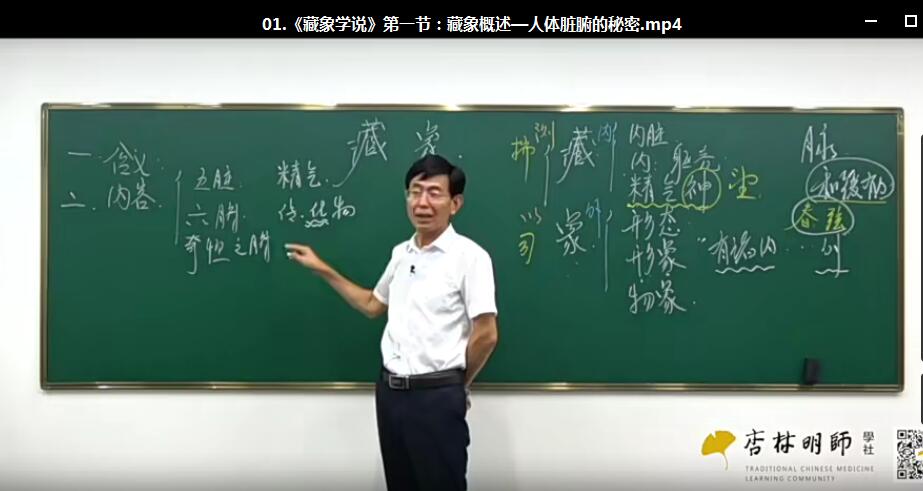 01.《藏象学说》第一节：藏象概述—人体脏腑的秘密.mp4
藏 象
一 含义：
二. 内容
五脏 精气.
六腑. 传.化物
奇恒之腑
藏 内
象 外
内脏
内.
精气神
形态
形象
物象.
以
司
脉
和缓
春弦
"有诸内
杏林明師 學社
TRADITIONAL CHINESE MEDICINE
LEARNING COMMUNITY